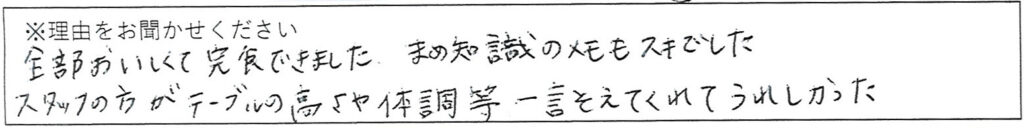 ※理由をお聞かせください
全部おいしくて完食できました、まめ知識のメモもスキでした
スタッフの方がテーブルの高さや体調等一言そえてくれてうれしかった